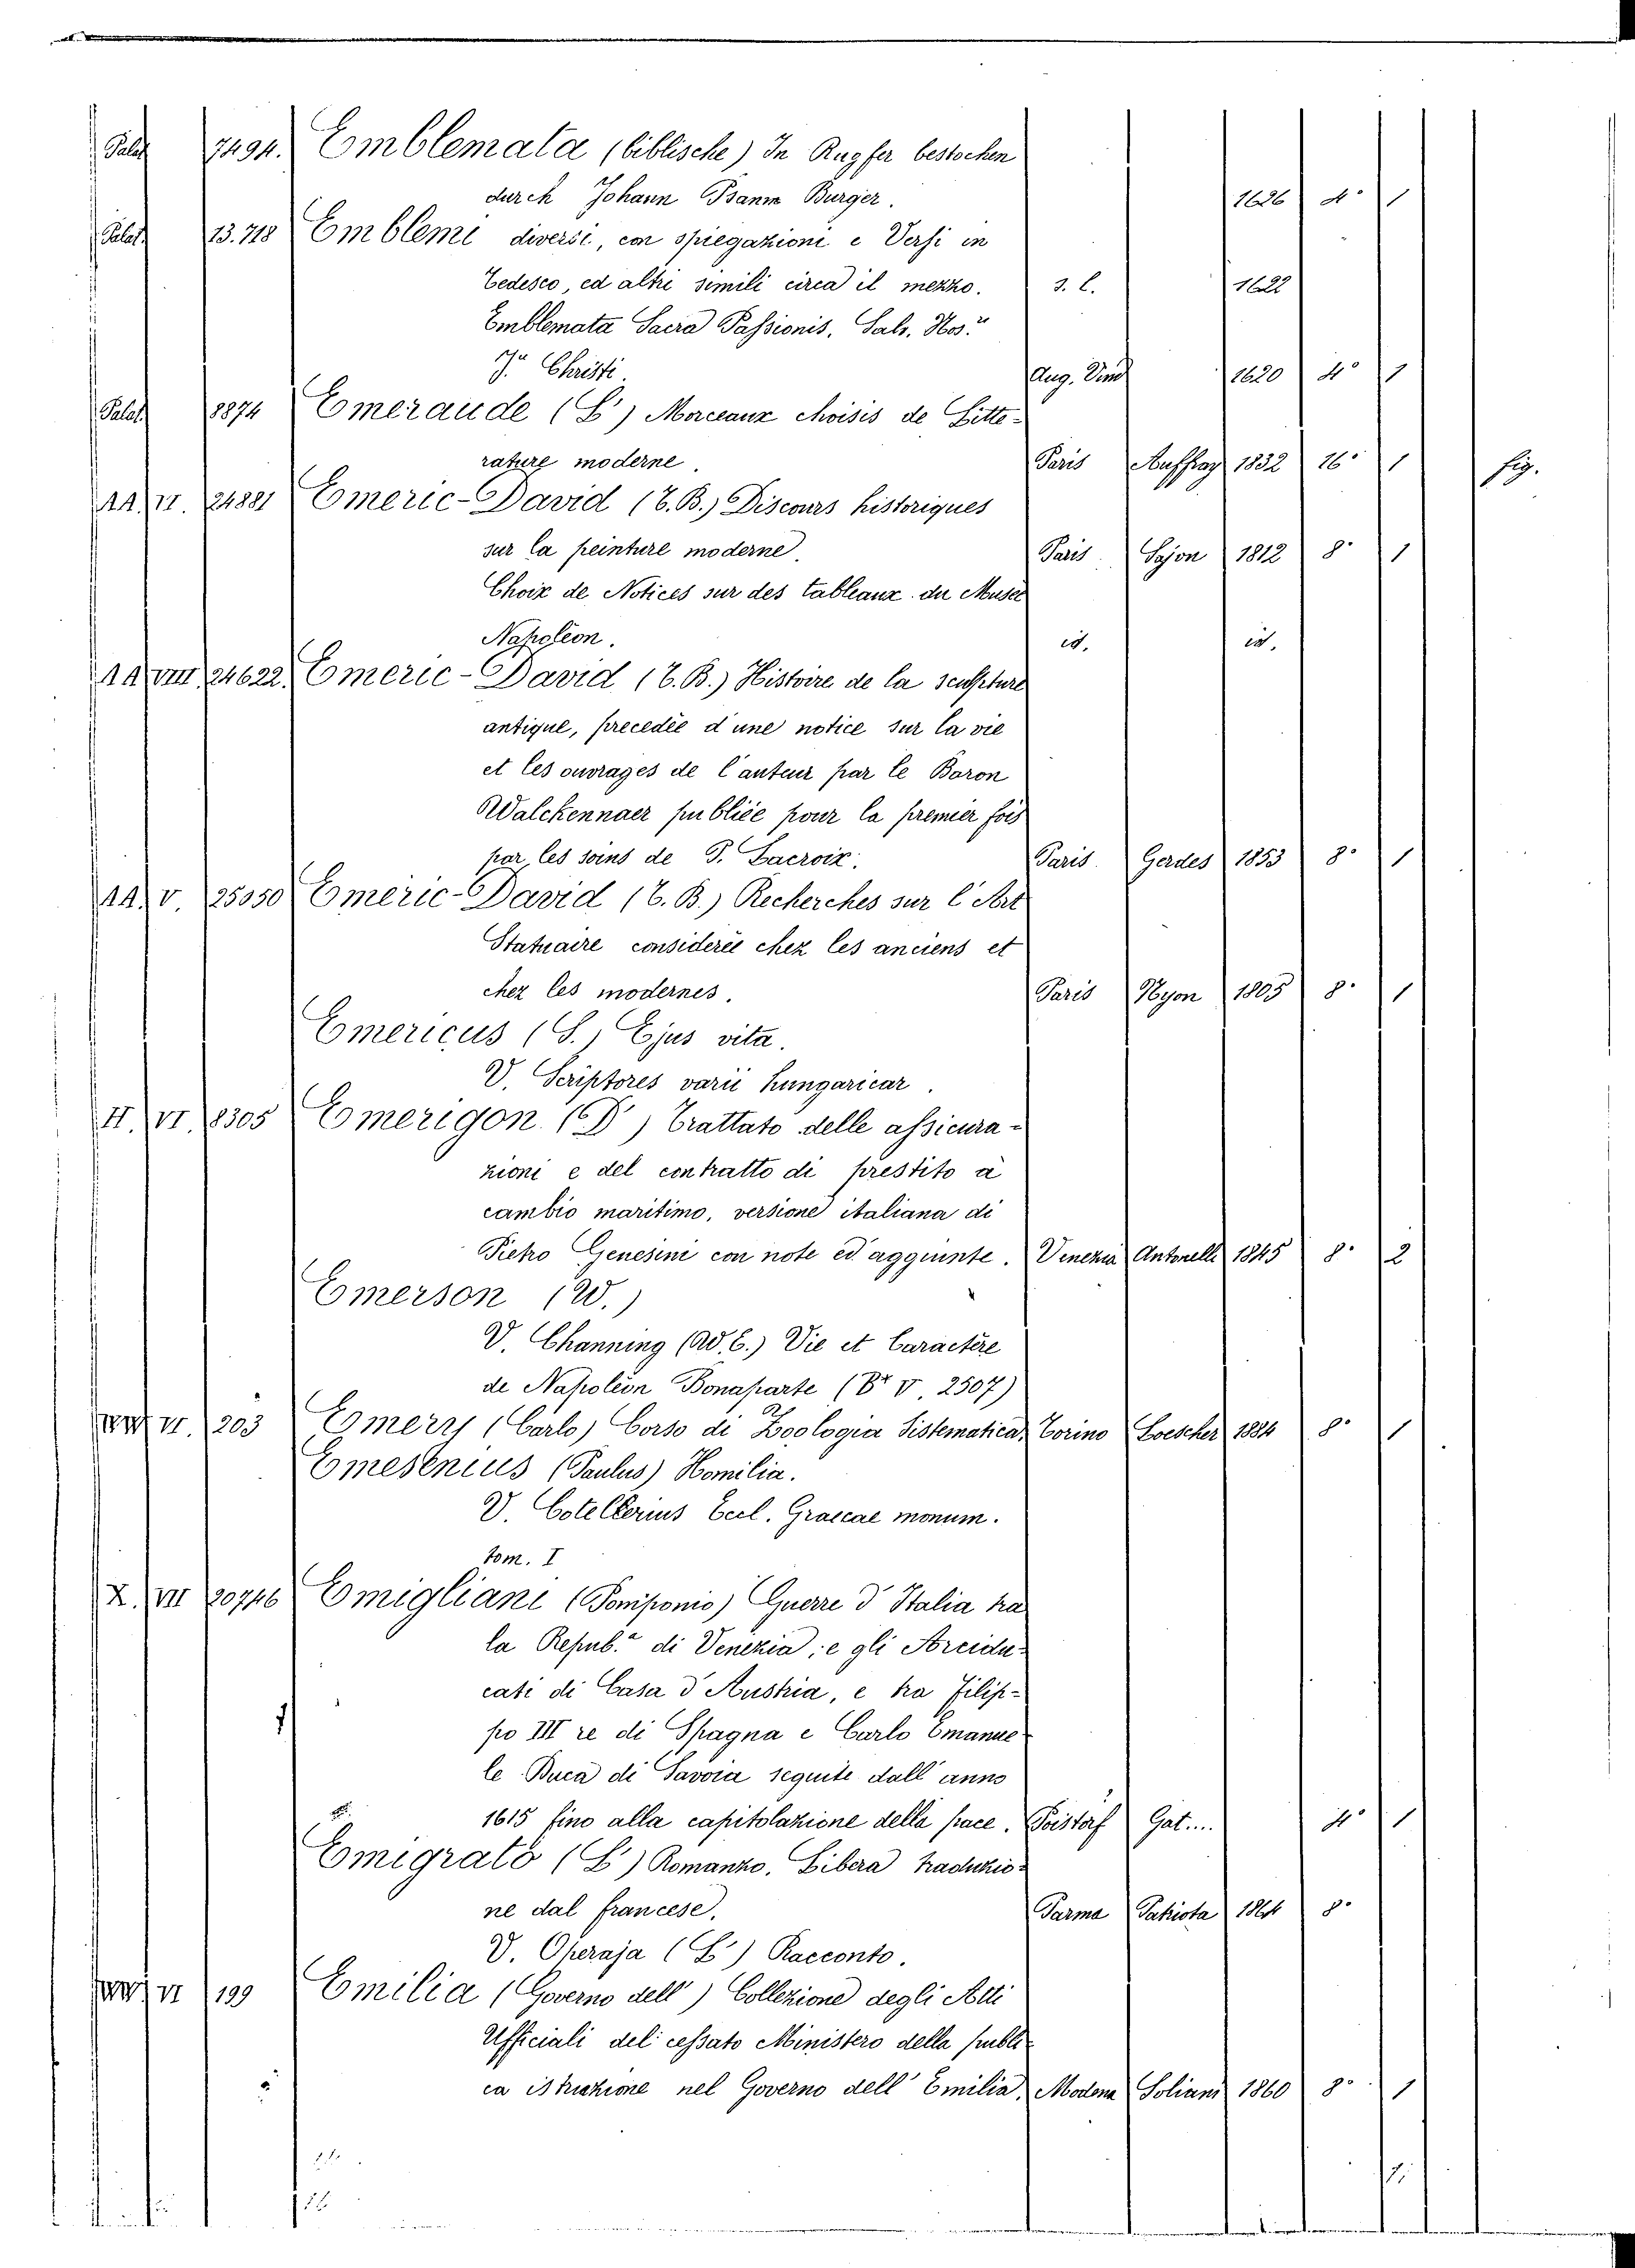 Palat 7494. Emblemata (biblische) In Rupfer bestochen
durch Johann Psanm Burger. 1626 4° 1
Palat. 13.718 Emblemi diversi, con spiegazioni e Versi in
Tedesco, ed altri simili circa il mezzo. s. l. 1622
Emblemata Sacra Passionis, Salv. Nos.ri
J.u Christi. Aug. Vind 1620 4° 1
Palat 8874 Emeraude (L') Morceaux choisis de Litte-
rature moderne. Paris Auffray 1832 16° 1 fig.
AA. VI. 24881 Emeric-David (T. B.) Discours historiques
sur la peinture moderne. Paris. Sajon 1812 8° 1
Choix de Notices sur des tableaux du Museé
Napoléon. id. id.
AA VIII 24622. Emeric-David (T. B.) Histoire de la sculpture
antique, precedée d'une notice sur la vie
et les ouvrages de l'auteur par le Baron
Walckennaer publiée pour la premier fois
par les soins de P. Lacroix. Paris. Gerdes 1853 8° 1
AA. V. 25050 Emeric-David (T. B.) Recherches sur l'Art
Statuaire considereé chez les anciens et
chez les modernes. Paris Nyon 1805 8° 1
Emericus (S.) Ejus vita.
V. Scriptores varii hungaricar.
II. VI. 8305 Emerigon (D') Trattato delle assicura-
zioni e del contratto di prestito a
cambio maritimo, versione italiana di
Pietro Genesini con note ed aggiunte. Venezia Antonelli 1845 8° 2
Emerson (W.)
V. Channing (W. E.) Vie et Caractère
de Napoléon Bonaparte (V. 2507)
VI. 203 Emery (Carlo) Corso di Zoologia Sistematica. Torino Loescher 1884 8° 1
Emesenius (Paulus) Homilia.
V. Cotellerius Eccl. Graecae monum.
tom. I
X. VII 20746 Emigliani (Pomponio) Guerre d'Italia tra
la Repub.a di Venezia; e gli Arcidu-
cati di Casa d'Austria, e tra Filip-
po III re di Spagna e Carlo Emanue-
le Duca di Savoia seguite dall'anno
1615 fino alla capitolazione della pace. Poistorf Gat.... 4° 1
Emigrato (L') Romanzo. Libera traduzio-
ne dal francese. Parma Patriota 1864 8°
V. Operaja (L') Racconto.
VI 199 Emilia (Governo dell') Collezione degli Atti
Ufficiali del cessato Ministero della publi-
ca istruzione nel Governo dell'Emilia. Modena Soliani 1860 8° 1